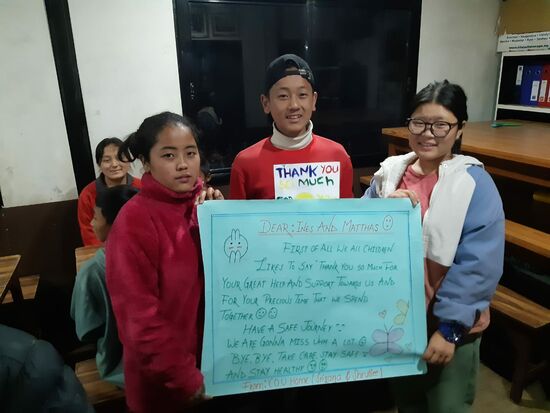 THANK YOU
SO MUCH
DEAR: INES AND MATTHAS
FIRST OF ALL WE ALL CHILDREN
LIKES TO SAY "THANK YOU SO MUCH FOR
YOUR GREAT HELP AND SUPPORT TOWARDS US AND
FOR YOUR PRECIOUS TIME THAT WE SPEND
TOGETHER
HAVE A SAFE JOURNEY
WE ARE GONNA MISS UHH A LOT.
BYE, BYE, TAKE CARE STAY SAFE
AND STAY HEALTHY
From: COU Home